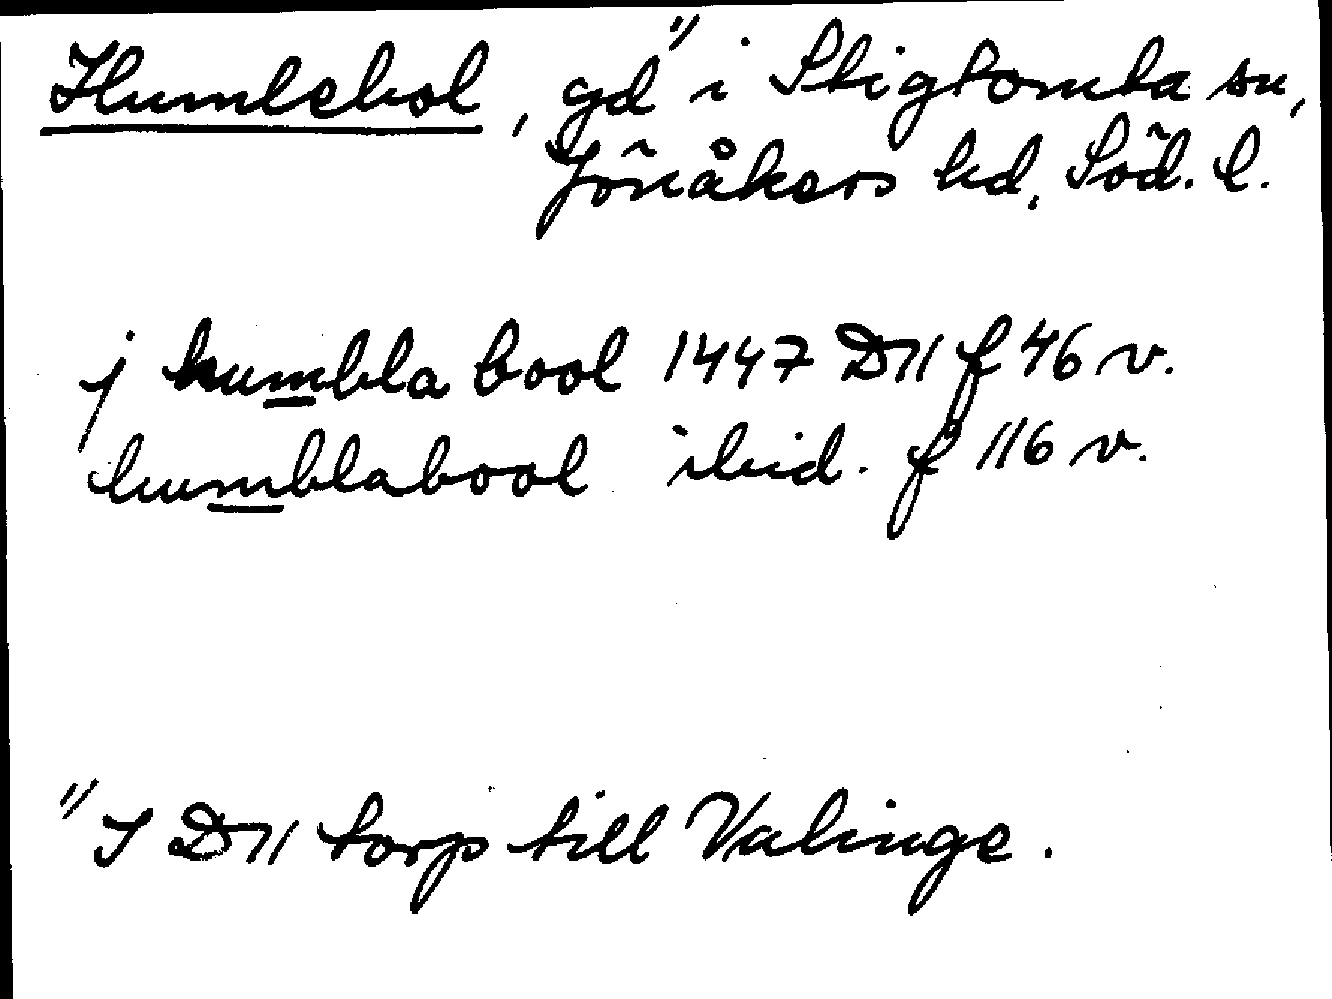 Humlebol, gd" i Stigtomta sn,
Jönåkers hd, Söd. l.
j humbla bool 1447 D11 f 46 v.
humblabool ibid. f 116 v.
" I D11 torp till Valinge.